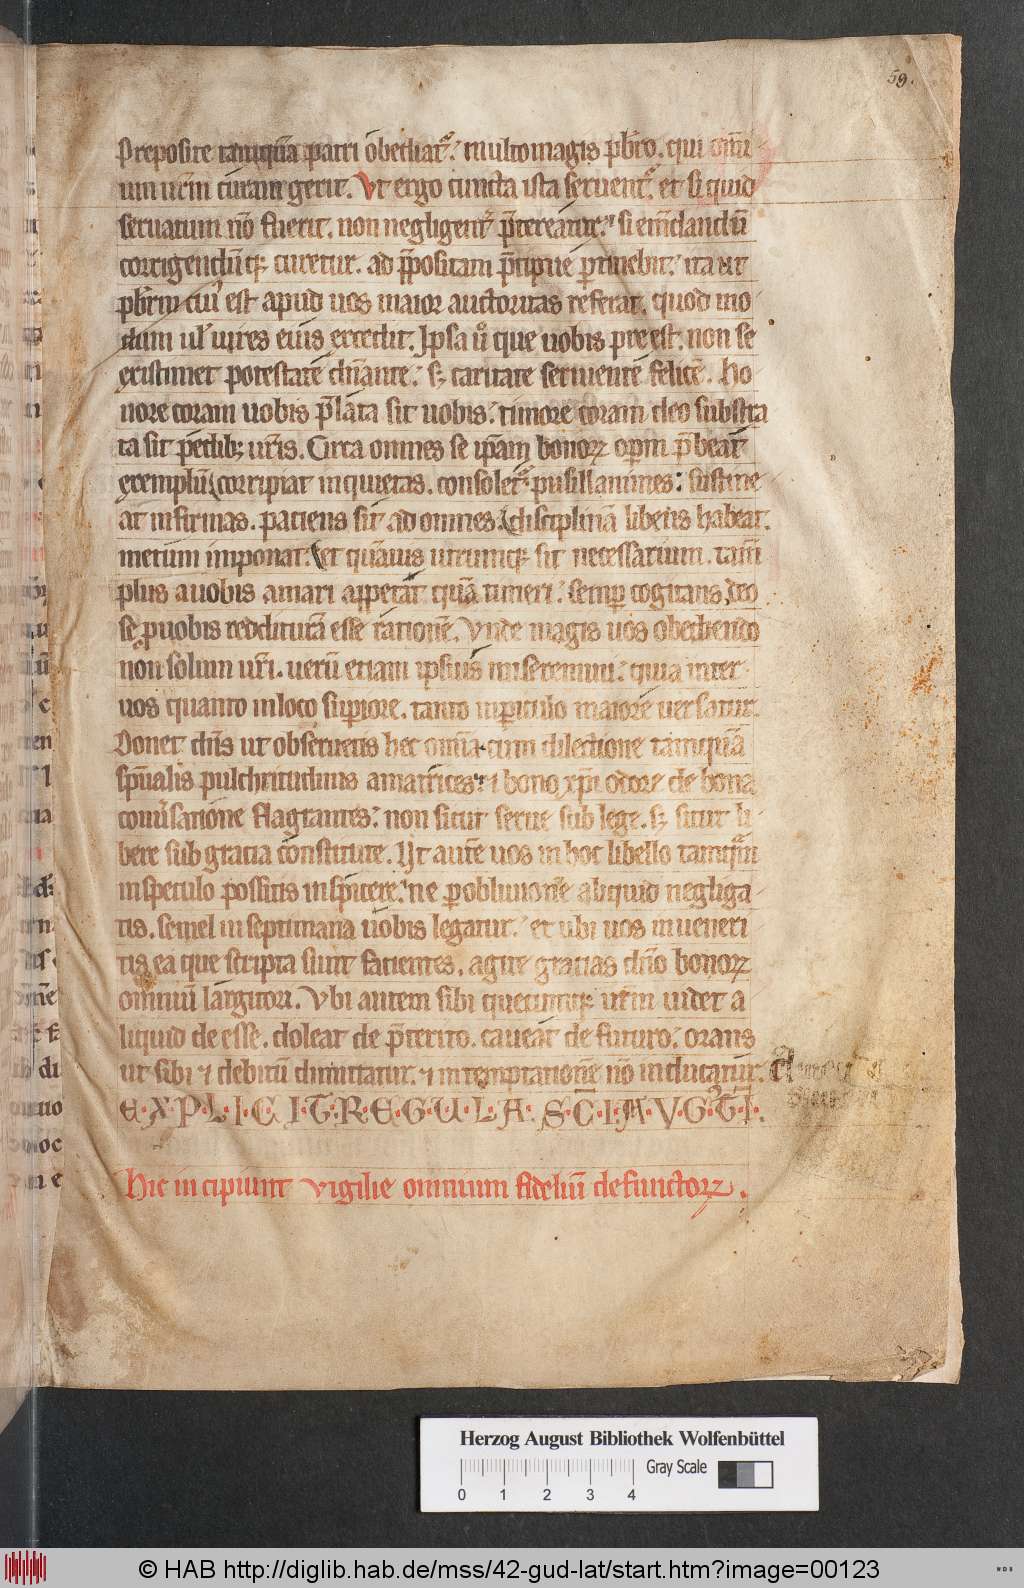 59.
Preposite tamquā patri obediat᷒. multo magis pb̄ro. qui om̄i
um ur̄m curam gerit. Vt ergo cuncta ista seruent᷒. et si quid
seruatum nō fuerit. non negligent᷒ p̄tereatur. si em̄dandū
corrigendūq; curetur. ad p̄positam p̄cipue ptinebit. ita ut
pb̄rm cui᷒ est apud uos maior auctoritas referat. quod mo
dum ul̓ uires eius excedit. Ipsa ů que uobis preest. non se
existimet potestatē dn̄ante. s; caritate seruientē felicē. Ho
nore coram uobis p̄lata sit uobis. timore coram deo substra
ta sit pedib; ur̄is. Circa omnes se ip̄am bonoꝝ opm p̄beat
exemplū corripiat inquietas. consolet᷒ pusillanimes. sustine
at infirmas. patiens sit ad omnes. disciplinā libens habeat.
metum imponat. et quāuis utrumq; sit necessarium. tam̄
plus a uobis amari appetat quā timeri. semp cogitans deo
se p uobis redditurā esse rationē. Vnde magis uos obediendo
non solum ur̄i. uerū etiam ipsius miseremini. quia inter
uos quanto in loco supiore. tanto in piculo maiore uersatur.
Donet dn̄s ut obseruetis hec om̄ia cum dilectione tamquā
sp̄ualis pulchritudinis amatrices. ⁊ bono xp̄i odore de bona
conuersatione flagrantes. non sicut serue sub lege. s; sicut li
bere sub gratia constitute. Vt autē uos in hoc libello tamquā
in speculo possitis inspicere. ne p obliuionē aliquid negliga
tis. semel in septimana uobis legatur. et ubi uos inueneri
tis ea que scripta sunt facientes. agite gratias dn̄o bonoꝝ
omniū largitori. Vbi autem sibi quecumq; ur̄m uidet a
liquid deesse. doleat de p̄terito. caueat de futuro. orans
ut sibi ⁊ debitū dimittatur. ⁊ in temptationē nō inducatur.
E·X·P·L·I·C·I·T·R·E·G·U·L·A· S·C̄·I·A·V·G᷒·T̄·I·
Hic incipiunt vigilie omnium fideliū defunctoꝝ.
Herzog August Bibliothek Wolfenbüttel
Gray Scale
0 1 2 3 4
© HAB http://diglib.hab.de/mss/42-gud-lat/start.htm?image=00123